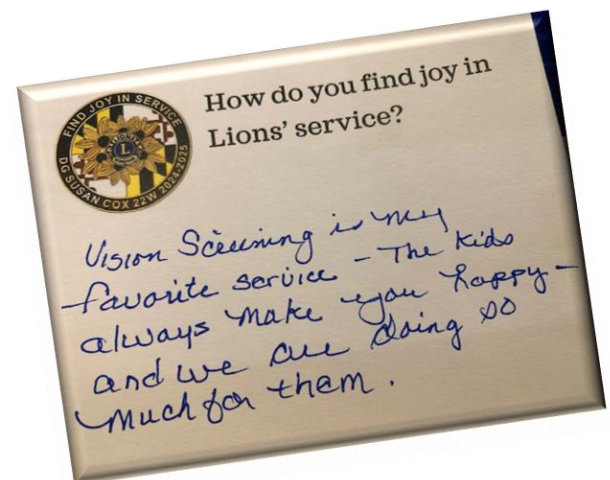 FIND JOY IN SERVICE
DG SUSAN COX 22W 2024-2025
L
How do you find joy in
Lions' service?
Vision Screening is my
favorite service - The kids
always make you happy -
and we are doing so
much for them.